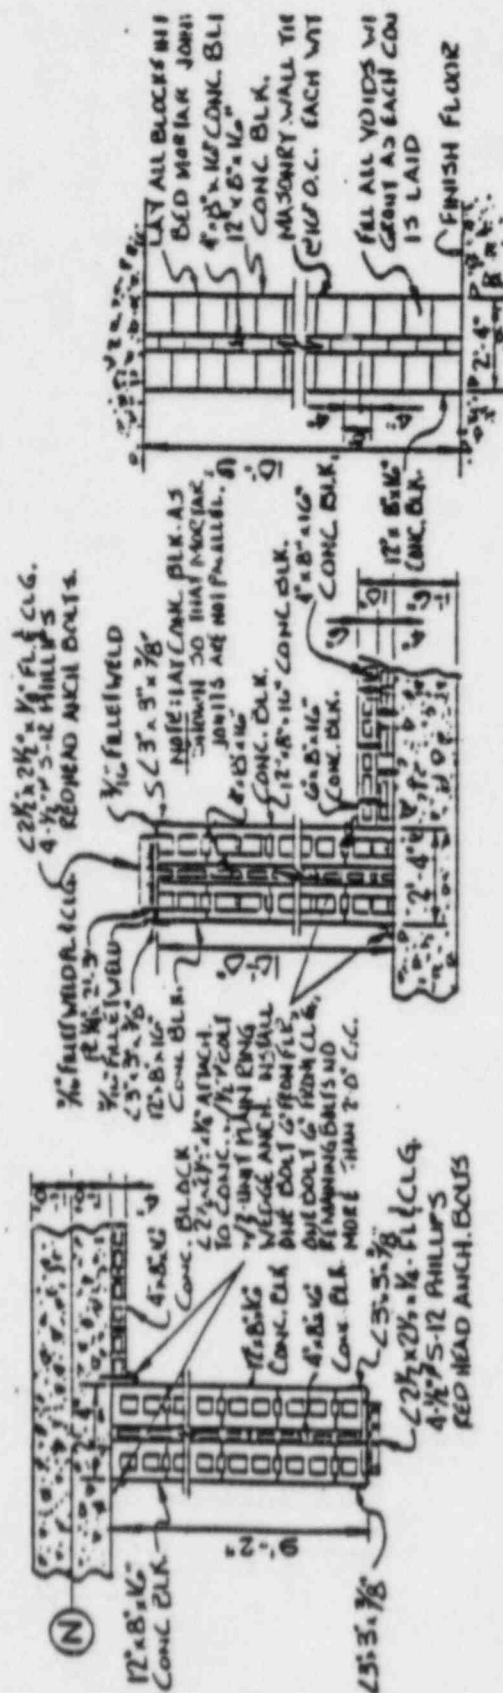 N
12"x8"x16"
CONC BLK
9'-2"
<3"x3"x3/8"
2'-4"
4"x8"x16"
CONC. BLOCK
<2½"x2½"x¼" ATTACH.
TO CONC. w/ ½"φ COLT
WEDGE ANCH. INSTALL
ONE BOLT 6" FROM FLR,
ONE BOLT 6" FROM CLG,
REMAINING BOLTS NO
MORE THAN 2'-0" C.C.
12"x8"x16"
CONC. BLK
4"x8"x16"
CONC BLK
<3"x3"x3/8"
<2½x2½x¼" FL & CLG.
4-½"φ S-12 PHILLIPS
RED HEAD ANCH. BOLTS
3/16" FILLET WELD FL & CLG
3/16" FILLET WELD
<3"x3"x3/8"
12"x8"x16"
CONC BLK.
<2½x2½"x¼" FL & CLG.
4-½"φ S-12 PHILLIPS
REDHEAD ANCH BOLTS.
3/16" FILLET WELD
<3"x3"x3/8"
NOTE: LAY CONC. BLK. AS
SHOWN SO THAT MORTAR
JOINTS ARE NOT PARALLEL.
CONC. BLK.
12"x8"x16" CONC BLK.
6"x8"x16"
CONC BLK.
4"x8"x16"
CONC BLK.
2'-4"
12"x8"x16"
CONC. BLK
LAY ALL BLOCKS IN
BED MORTAR JOIN
4"x8"x16" CONC. BL
12"x8"x16"
CONC BLK.
MASONRY WALL TIE
@16" O.C. EACH WY
FILL ALL VOIDS WI
GROUT AS EACH COU
IS LAID
FINISH FLOOR
2'-4"